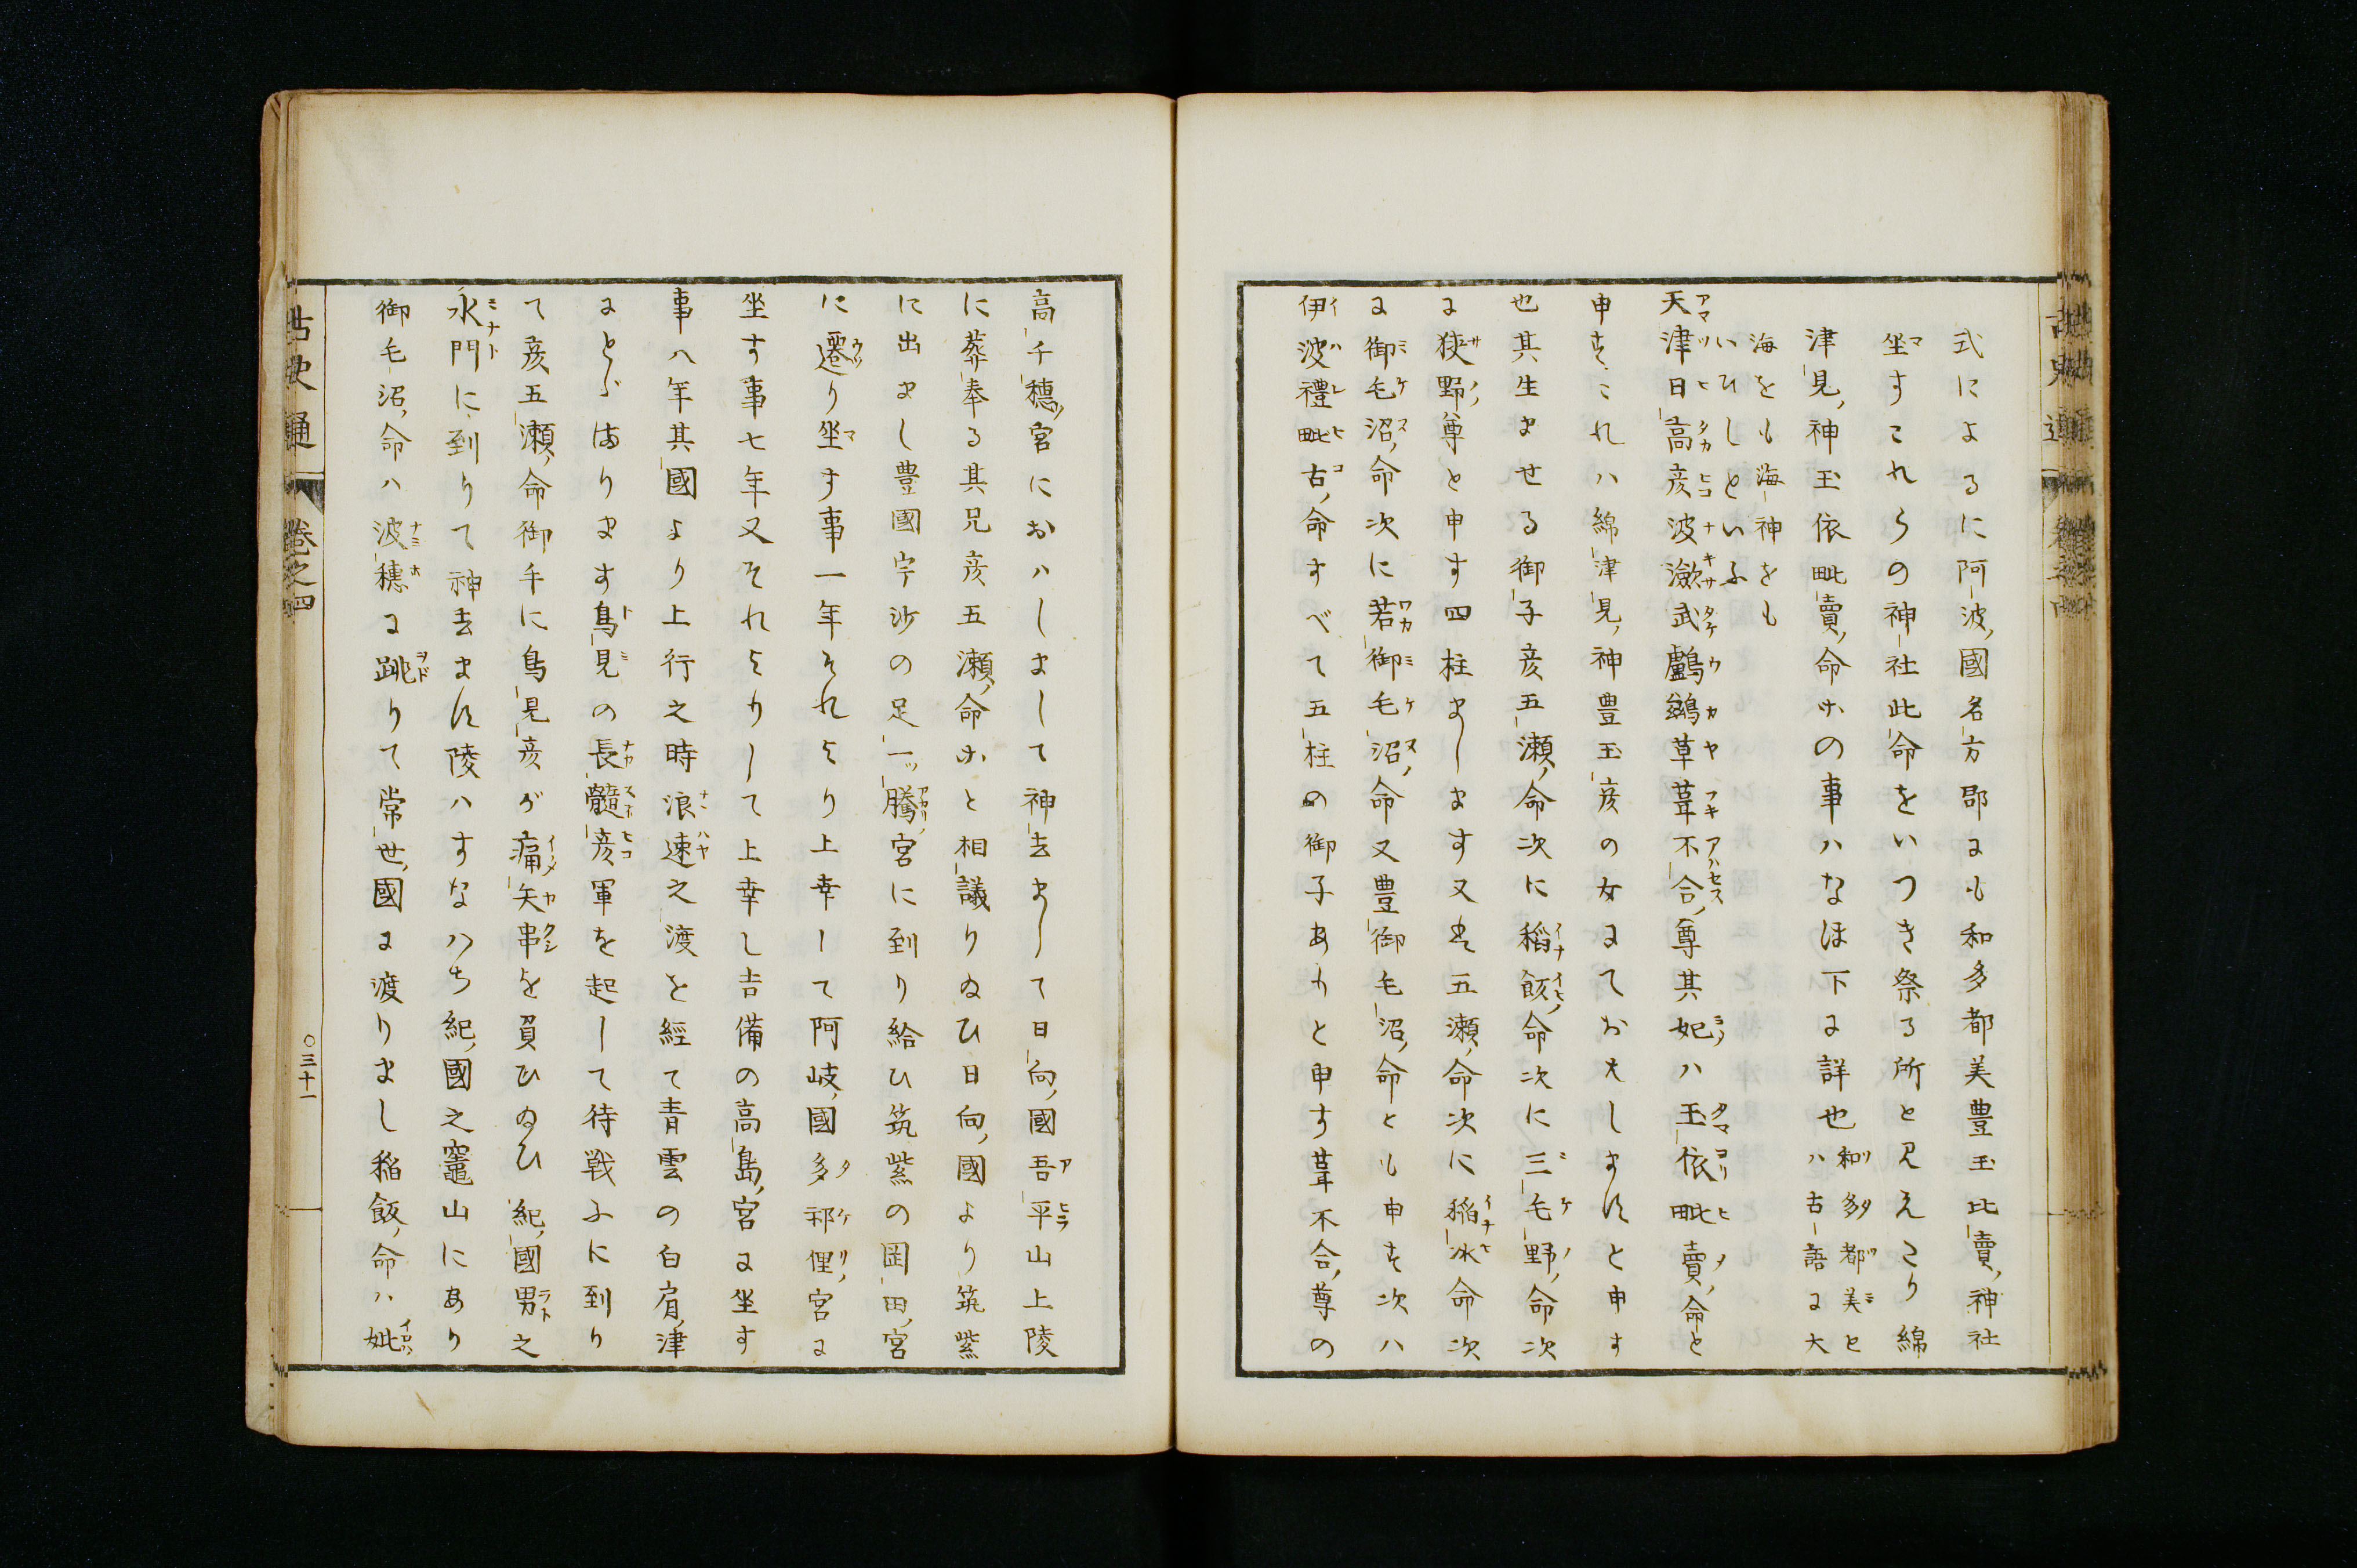 式によるに阿波國名方郡にも和多都美豊玉比賣神社
坐すこれらの神社此命をいつき祭る所と見えたり綿
津見神玉依毗賣命等の事ハなほ下に詳也 和多都美と
ハ古語に大
海をも海神をも
いひしといふ
天津日高彦波瀲武鸕鷀草葺不合尊其妃ハ玉依毗賣命と
申すこれハ綿津見神豊玉彦の女にておはしますと申す
也其生ませる御子彦五瀬命次に稲飯命次に三毛野命次
に狭野尊と申す四柱まします又は五瀬命次に稲氷命次
に御毛沼命次に若御毛沼命又豊御毛沼命とも申す次ハ
伊波禮毗古命すべて五柱の御子ありと申す葺不合尊の
高千穗宮におハしまして神去まして日向國吾平山上陵
に葬奉る其兄彦五瀬命等と相議りゐひ日向國より筑紫
に出まし豊國宇沙の足一ッ騰宮に到り給ひ筑紫の岡田宮
に遷り坐す事一年それより上幸して阿岐國多祁俚宮に
坐す事七年又それよりして上幸し吉備の高島宮に坐す
事八年其國より上行之時浪速之渡を經て青雲の白肩津
にとゞまります鳥見の長髓彦軍を起して待戦ふに到り
て彦五瀬命御手に鳥見彦が痛矢串を負ひゐひ紀國男之
水門に到りて神去ます陵ハすなハち紀國之竈山にあり
御毛沼命ハ波穗に跳りて常世國に渡りまし稲飯命ハ妣
古史通 卷之四
〇三十一